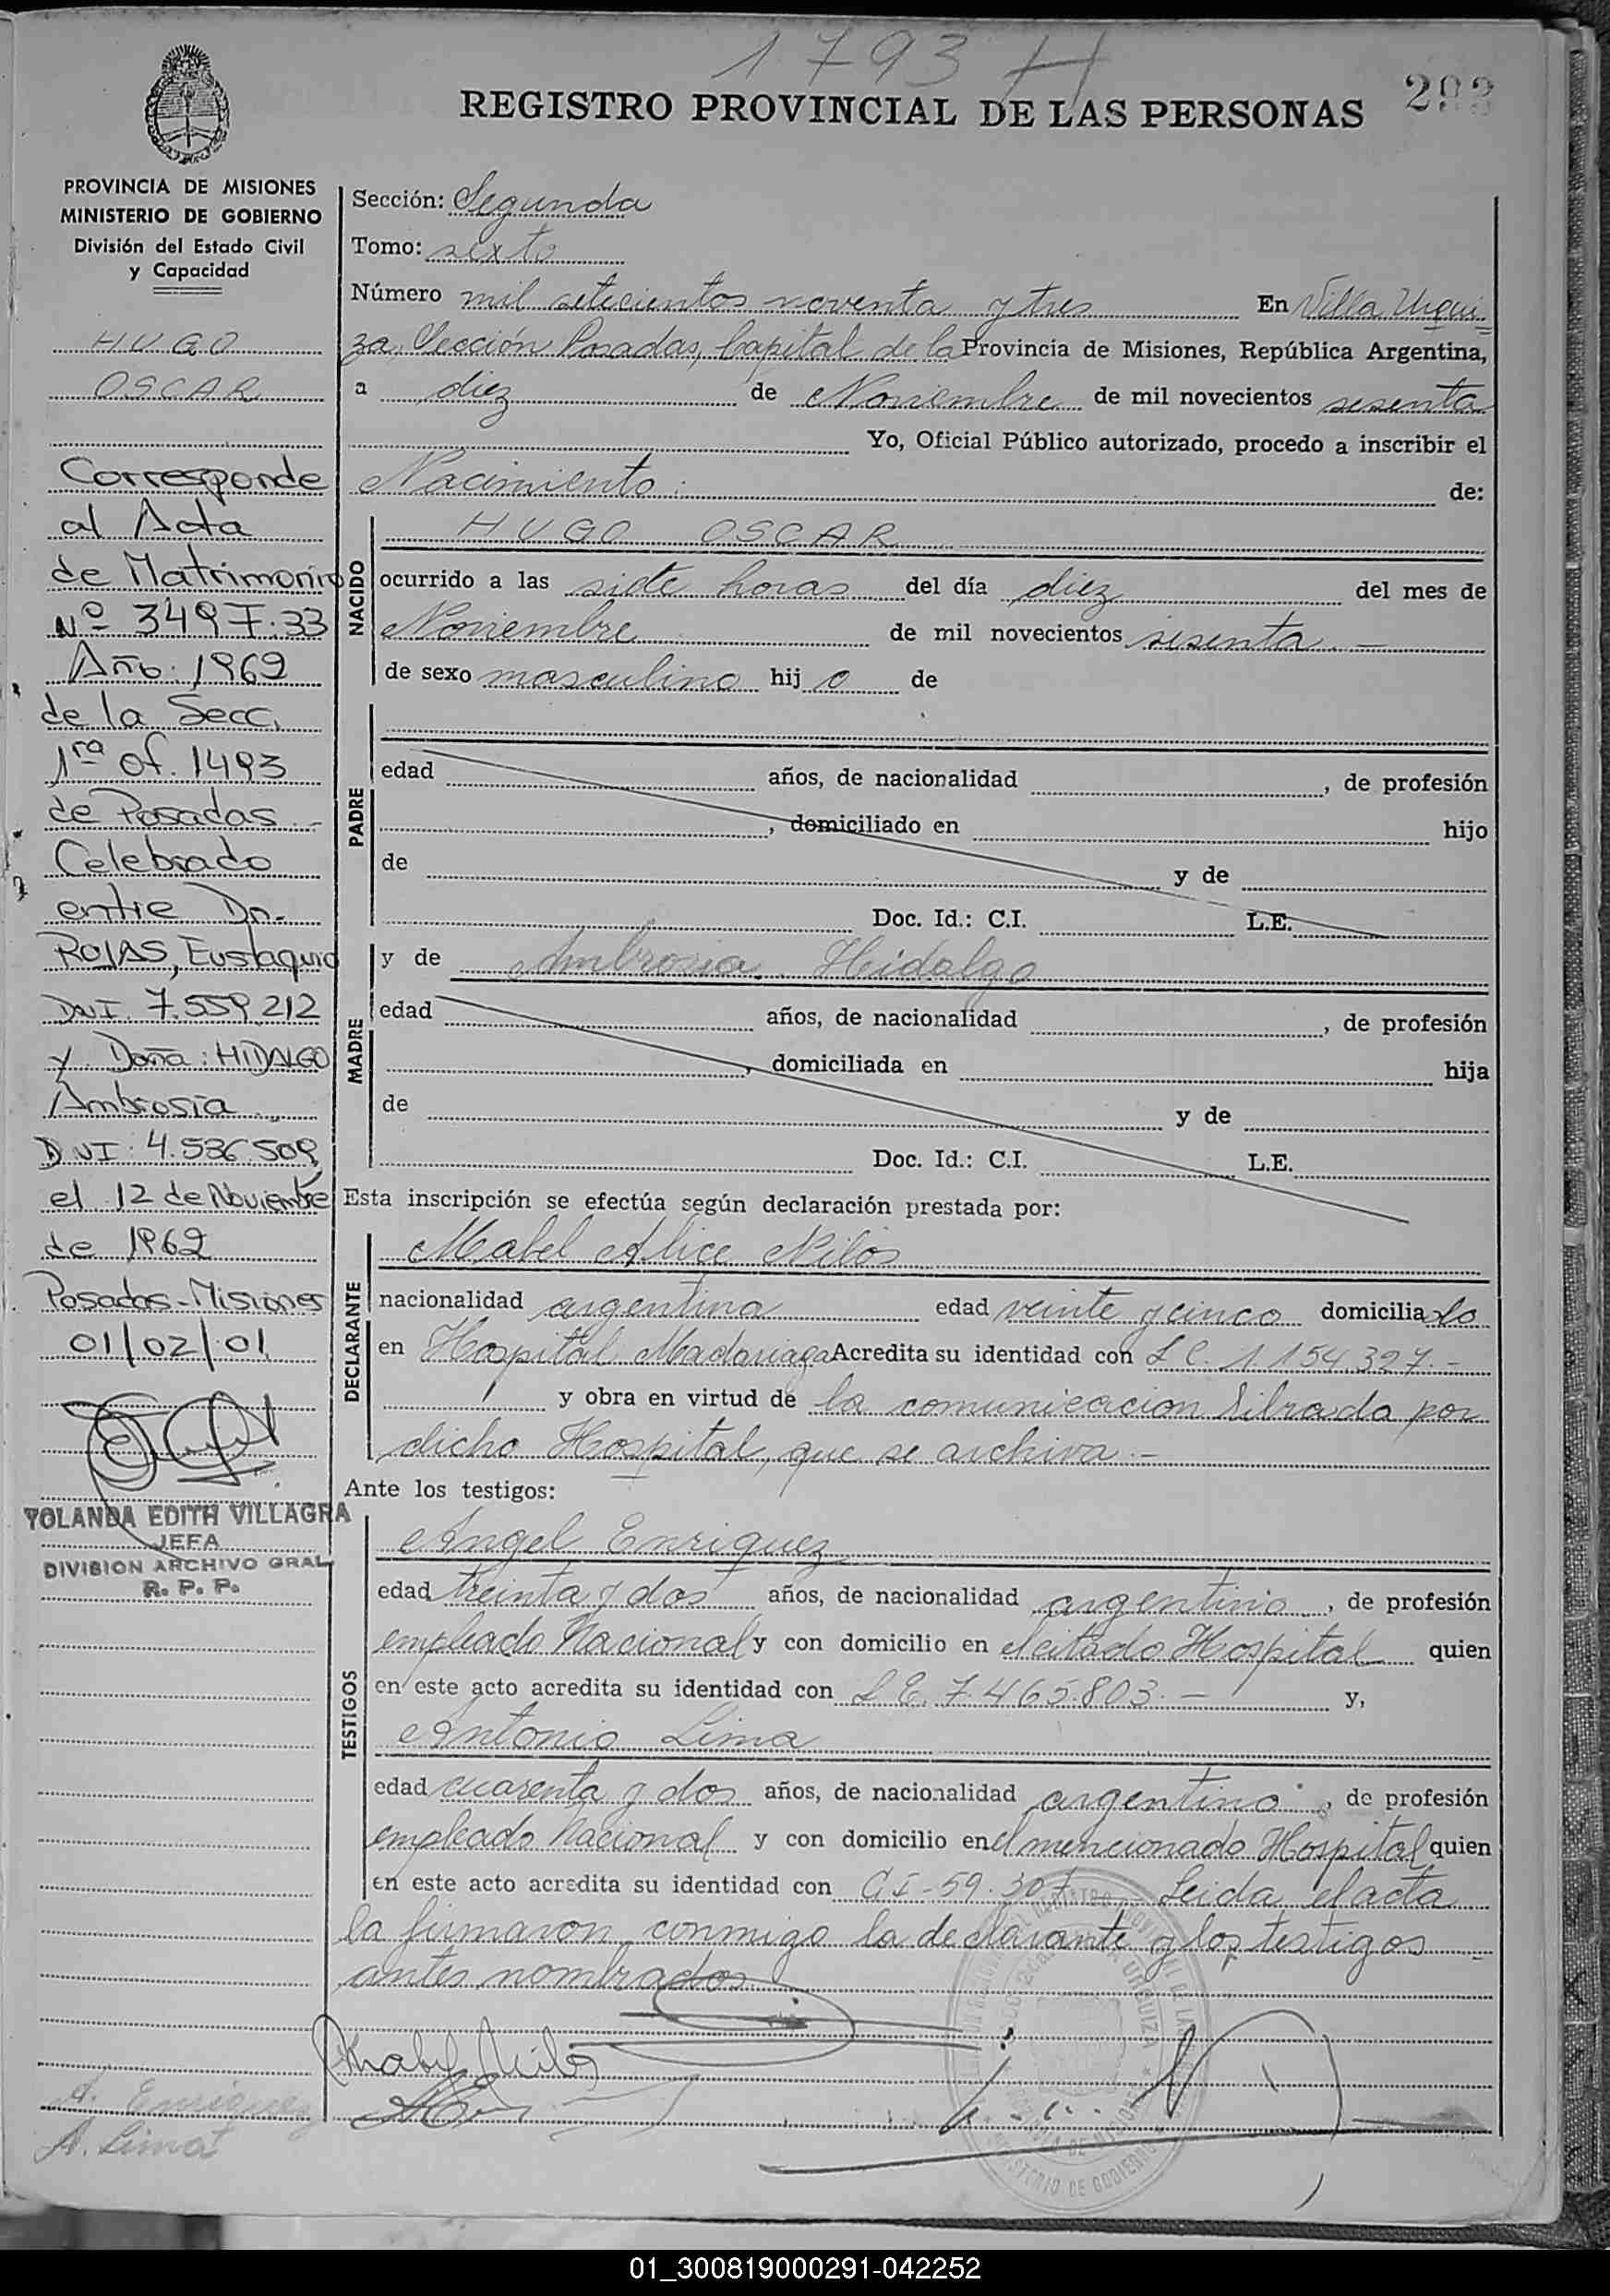 1793 H
REGISTRO PROVINCIAL DE LAS PERSONAS
PROVINCIA DE MISIONES
MINISTERIO DE GOBIERNO
División del Estado Civil
y Capacidad
HUGO
OSCAR
Corresponde
al Acta
de Matrimonio
Nº 3497.33
Año: 1962
de la Secc.
1ra of. 1493
de Posadas.-
Celebrado
entre Dn.
ROJAS, Eustaquio
DNI. 7.559.212
y Doña: HIDALGO
Ambrosia
DNI: 4.536.509
el 12 de Noviembre
de 1962
Posadas-Misiones
01/02/01
YOLANDA EDITH VILLAGRA
JEFA
DIVISION ARCHIVO GRAL.
R. P. P.
A. Enriquez
A. Lima
Sección: Segunda
Tomo: sexto
Número mil setecientos noventa y tres En Villa Urqui-
za, Sección Posadas, Capital de la Provincia de Misiones, República Argentina,
a diez de Noviembre de mil novecientos sesenta
Yo, Oficial Público autorizado, procedo a inscribir el
Nacimiento: de:
NACIDO
HUGO OSCAR
ocurrido a las siete horas del día diez del mes de
Noviembre de mil novecientos sesenta.-
de sexo masculino hij o de
PADRE
edad años, de nacionalidad , de profesión
, domiciliado en hijo
de y de
Doc. Id.: C.I. L.E.
MADRE
y de Ambrosia Hidalgo
edad años, de nacionalidad , de profesión
, domiciliada en hija
de y de
Doc. Id.: C.I. L.E.
Esta inscripción se efectúa según declaración prestada por:
DECLARANTE
Mabel Alice Nilos
nacionalidad argentina edad veinte y cinco domicilia do
en Hospital Madariaga Acredita su identidad con L C. 1.154.327.-
y obra en virtud de la comunicacion librada por
dicho Hospital, que se archiva.-
Ante los testigos:
TESTIGOS
Angel Enriquez
edad treinta y dos años, de nacionalidad argentino , de profesión
empleado Nacional y con domicilio en el citado Hospital quien
en este acto acredita su identidad con L E. 7.465.803.- y,
Antonio Lima
edad cuarenta y dos años, de nacionalidad argentino , de profesión
empleado Nacional y con domicilio en el mencionado Hospital quien
en este acto acredita su identidad con C I-59.307.- Leida el acta
la firmaron conmigo la declarante y los testigos
antes nombrados.
01_300819000291-042252